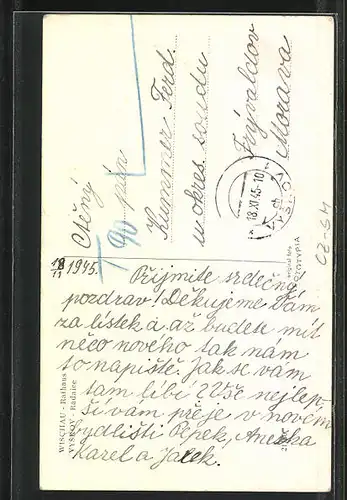 Ctěný
pán
Kummer Ferd.
u okres. soudu
Frývaldov
Morava
18.XI.45-10
T 90
18/11 1945.
Přijmite srdečný
pozdrav! Děkujeme Vám
za lístek a až budete mít
něco nového tak nám
to napiště. Jak se vám
tam líbí? Vše nejlep-
ší vám přeje v novém
bydlišti Pepek, Anežka
Karel a Jacek.
WISCHAU - Rathaus
VYŠKOV - Radnice
FOTOTYPIA